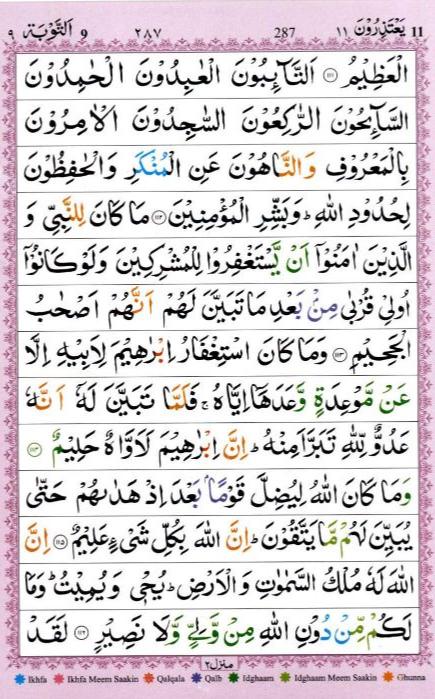 11 يَعْتَذِرُوْنَ ١١ 287 ٢٨٧ 9 اَلتَّوْبَة ٩
الْعَظِيْمُ ﴿۱۱۱﴾ اَلتَّآئِبُوْنَ الْعٰبِدُوْنَ الْحٰمِدُوْنَ
السَّآئِحُوْنَ الرّٰكِعُوْنَ السّٰجِدُوْنَ الْاٰمِرُوْنَ
بِالْمَعْرُوْفِ وَالنَّاهُوْنَ عَنِ الْمُنْكَرِ وَالْحٰفِظُوْنَ
لِحُدُوْدِ اللّٰهِ ؕ وَبَشِّرِ الْمُؤْمِنِيْنَ ﴿۱۱۲﴾ مَا كَانَ لِلنَّبِيِّ وَ
الَّذِيْنَ اٰمَنُوْۤا اَنْ يَّسْتَغْفِرُوْا لِلْمُشْرِكِيْنَ وَلَوْ كَانُوْۤا
اُولِيْ قُرْبٰى مِنْۢ بَعْدِ مَا تَبَيَّنَ لَهُمْ اَنَّهُمْ اَصْحٰبُ
الْجَحِيْمِ ﴿۱۱۳﴾ وَمَا كَانَ اسْتِغْفَارُ اِبْرٰهِيْمَ لِاَبِيْهِ اِلَّا
عَنْ مَّوْعِدَةٍ وَّعَدَهَاۤ اِيَّاهُ ۚ فَلَمَّا تَبَيَّنَ لَهٗۤ اَنَّهٗ
عَدُوٌّ لِّلّٰهِ تَبَرَّاَ مِنْهُ ؕ اِنَّ اِبْرٰهِيْمَ لَاَوَّاهٌ حَلِيْمٌ ﴿۱۱۴﴾
وَمَا كَانَ اللّٰهُ لِيُضِلَّ قَوْمًۢا بَعْدَ اِذْ هَدٰىهُمْ حَتّٰى
يُبَيِّنَ لَهُمْ مَّا يَتَّقُوْنَ ؕ اِنَّ اللّٰهَ بِكُلِّ شَيْءٍ عَلِيْمٌ ﴿۱۱۵﴾ اِنَّ
اللّٰهَ لَهٗ مُلْكُ السَّمٰوٰتِ وَالْاَرْضِ ؕ يُحْيٖ وَيُمِيْتُ ؕ وَمَا
لَكُمْ مِّنْ دُوْنِ اللّٰهِ مِنْ وَّلِيٍّ وَّلَا نَصِيْرٍ ﴿۱۱۶﴾ لَقَدْ
منزل ٢
Ikhfa Ikhfa Meem Saakin Qalqala Qalb Idghaam Idghaam Meem Saakin Ghunna